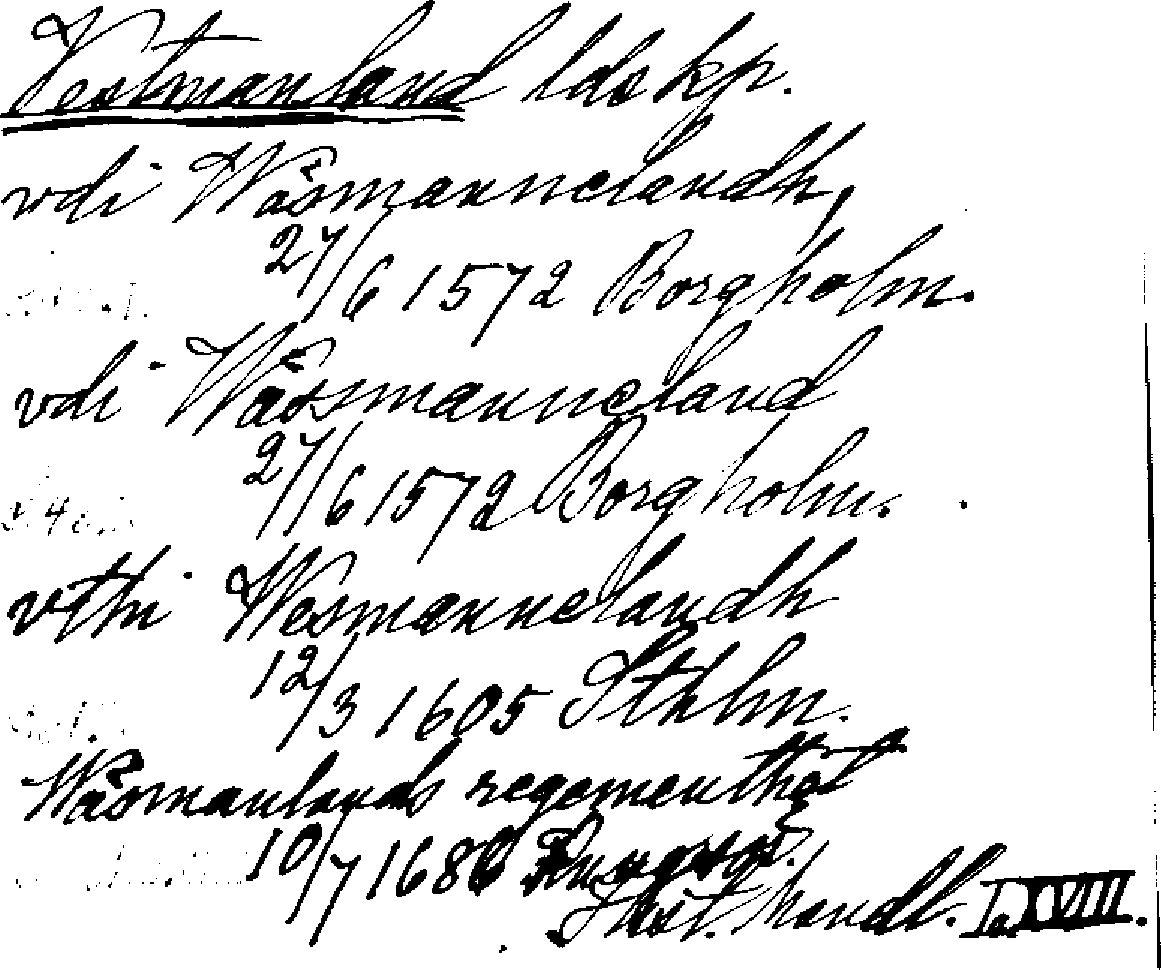 Vestmanland ldskp.
vdi Wäsmannelandh,
27/6 1572 Borgholm.
vdi Wäsmanneland
27/6 1572 Borgholm.
vthi Wesmannelandh
12/3 1605 Sthlm.
Wäsmanlands regementhet
10/7 1686
Hist. handl. XVIII.